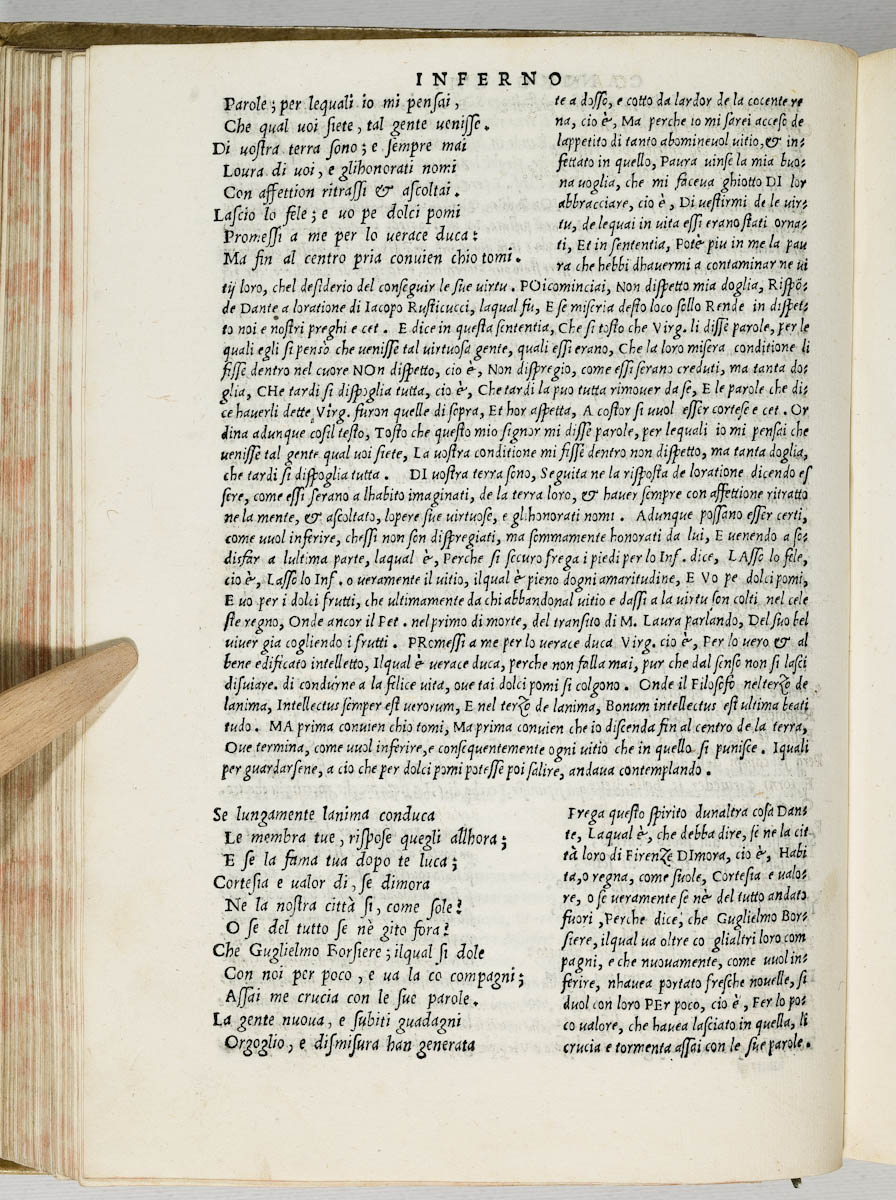 INFERNO
Parole; per lequali io mi pensai,
Che qual voi siete, tal gente venisse.
Di vostra terra sono; e sempre mai
Loura di voi, e glihonorati nomi
Con affettion ritrassi & ascoltai.
Lascio lo fele; e vo pe dolci pomi
Promessi a me per lo verace duca:
Ma fin al centro pria convien chio tomi.
te a dosso, e cotto da lardor de la cocente re
na, cio è, Ma perche io mi sarei acceso de
lappetito di tanto abominevol vitio, & in-
fettato in quello, Paura vinse la mia buo-
na voglia, che mi faceva ghiotto DI lor
abbracciare, cio è, Di vestirmi de le vir-
tu, de lequai in vita essi erano stati orna-
ti, Et in sententia, Potè piu in me la pau
ra che hebbi dhavermi a contaminar ne vi
tij loro, chel desiderio del conseguir le sue virtu. POi cominciai, Non dispetto mia doglia, Rispō-
de Dante a loratione di Iacopo Rusticucci, laqual fu, E se miseria desto loco sollo Rende in dispet-
to noi e nostri preghi e cet. E dice in questa sententia, Che si tosto che Virg. li disse parole, per le
quali egli si pensò che venisse tal virtuosa gente, quali essi erano, Che la loro misera conditione li
fisse dentro nel cuore NOn dispetto, cio è, Non dispregio, come essi serano creduti, ma tanta do-
glia, CHe tardi si dispoglia tutta, cio è, Che tardi la puo tutta rimover da se, E le parole che di-
ce haverli dette Virg. furon quelle di sopra, Et hor aspetta, A costor si vuol esser cortese e cet. Or
dina adunque cosil testo, Tosto che questo mio signor mi disse parole, per lequali io mi pensai che
venisse tal gente qual voi siete, La vostra conditione mi fisse dentro non dispetto, ma tanta doglia,
che tardi si dispoglia tutta. DI vostra terra sono, Seguita ne la risposta de loratione dicendo es
sere, come essi serano a lhabito imaginati, de la terra loro, & haver sempre con affettione ritratto
ne la mente, & ascoltato, lopere sue virtuose, e glihonorati nomi. Adunque possano esser certi,
come vuol inferire, chessi non son dispregiati, ma sommamente honorati da lui, E venendo a so-
disfar a lultima parte, laqual è, Perche si securo frega i piedi per lo Inf. dice, LAsso lo fele,
cio è, Lasso lo Inf. o veramente il vitio, ilqual è pieno dogni amaritudine, E VO pe dolci pomi,
E vo per i dolci frutti, che ultimamente da chi abbandonal vitio e dassi a la virtu son colti nel cele
ste regno, Onde ancor il Pet. nel primo di morte, del transito di M. Laura parlando, Del suo bel
viver gia cogliendo i frutti. PRomessi a me per lo verace duca Virg. cio è, Per lo vero & al
bene edificato intelletto, Ilqual è verace duca, perche non falla mai, pur che dal senso non si lasci
disviare. di condurne a la felice vita, ove tai dolci pomi si colgono. Onde il Filosofo nel terzo de
lanima, Intellectus semper est verorum, E nel terzo de lanima, Bonum intellectus est ultima beati
tudo. MA prima convien chio tomi, Ma prima convien che io discenda fin al centro de la terra,
Ove termina, come vuol inferire, e consequentemente ogni vitio che in quello si punisce. I quali
per guardarsene, a cio che per dolci pomi potesse poi salire, andava contemplando.
Se lungamente lanima conduca
Le membra tue, rispose quegli allhora;
E se la fama tua dopo te luca;
Cortesia e valor di, se dimora
Ne la nostra città si, come sole?
O se del tutto se nè gito fora?
Che Guglielmo Borsiere; ilqual si dole
Con noi per poco, e va la co compagni;
Assai me crucia con le sue parole.
La gente nuova, e subiti guadagni
Orgoglio, e dismisura han generata
Frega questo spirito dunaltra cosa Dan-
te, Laqual è, che debba dire, se ne la cit
tà loro di Firenze DImora, cio è, Habi
ta, o regna, come suole, Cortesia e valo-
re, o se veramente se nè del tutto andato
fuori, Perche dice, che Guglielmo Bor-
siere, ilqual va oltre co glialtri loro com
pagni, e che nuovamente, come vuol in-
ferire, nhavea portato fresche novelle, si
duol con loro PEr poco, cio è, Per lo po-
co valore, che havea lasciato in quella, li
crucia e tormenta assai con le sue parole.